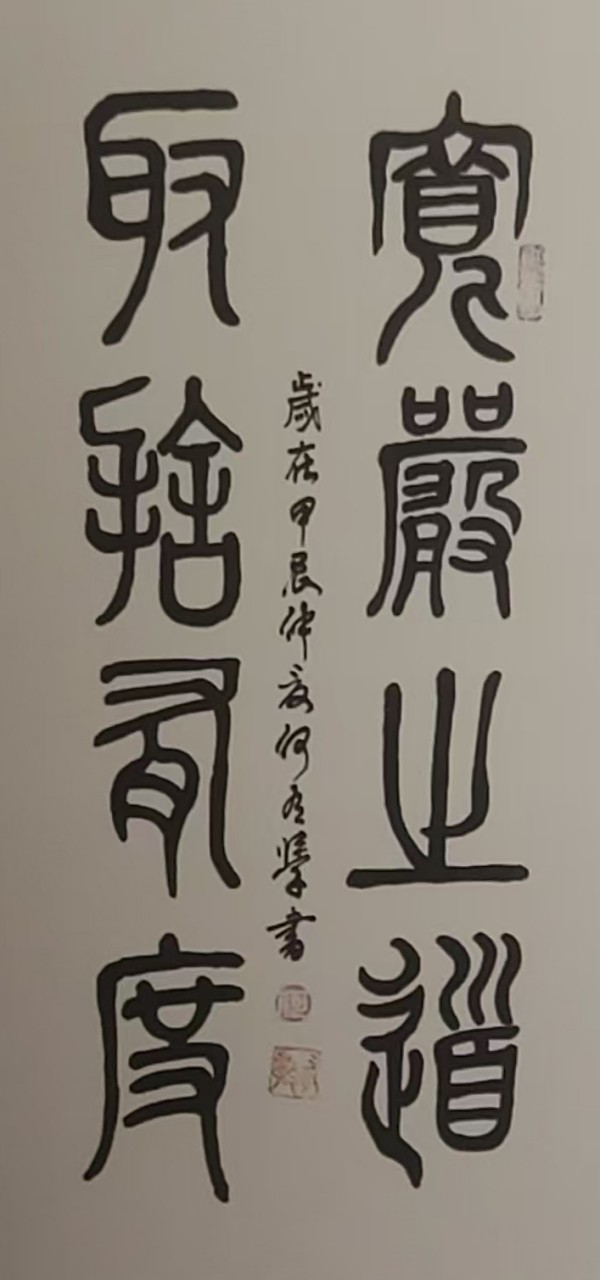 寬嚴之道
取捨有度
歲在甲辰仲夏何有學書